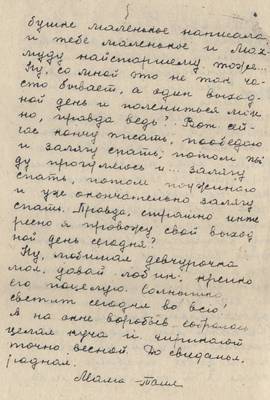 бушке маленькое написала
и тебе маленькое и Мах-
муду найстаршему тоже...
Ну, со мной это не так ча-
сто бывает, а один выход-
ной день и полениться мож-
но, правда ведь? Вот сей-
час кончу писать, пообедаю
и залягу спать, потом пой-
ду прогуляюсь и... залягу
спать, потом поужинаю
и уже окончательно залягу
спать. Правда, страшно инте-
ресно я провожу свой выход
ной день сегодня?
Ну, любимая девчурочка
моя, давай лобик, крепко
его поцелую. Солнышко
светит сегодня во всю,
А на окне воробьёв собралась
целая куча и чирикают
точно весной. До свиданья,
родная.
Мама -